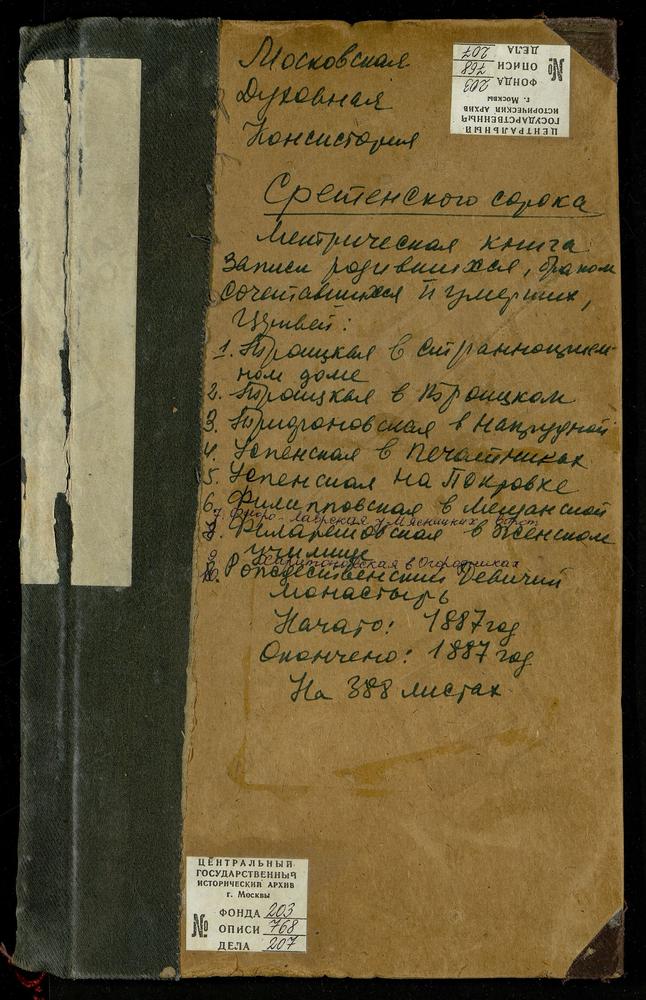 Московская
Духовная
Консистория
ЦЕНТРАЛЬНЫЙ
ГОСУДАРСТВЕННЫЙ
ИСТОРИЧЕСКИЙ АРХИВ
г. Москвы
№
ФОНДА 203
ОПИСИ 768
ДЕЛА 207
Сретенского сорока
Метрическая книга
записи родившихся, браком
сочетавшихся и умерших,
Церквей:
1. Троицкая в Странноприем-
ном доме
2. Троицкая в Троицком
3. Трифоновская в Напрудной
4. Успенская в Печатниках
5. Успенская на Покровке
6. Филипповская в Мещанской
7. Флоро-Лаврская у Мясницких ворот
8. Филаретовская в Женском
училище
9. Харитоновская в Огородниках
10. Рождественский Девичий
монастырь
Начато: 1887 год
Окончено: 1887 год
На 388 листах
ЦЕНТРАЛЬНЫЙ
ГОСУДАРСТВЕННЫЙ
ИСТОРИЧЕСКИЙ АРХИВ
г. Москвы
№
ФОНДА 203
ОПИСИ 768
ДЕЛА 207